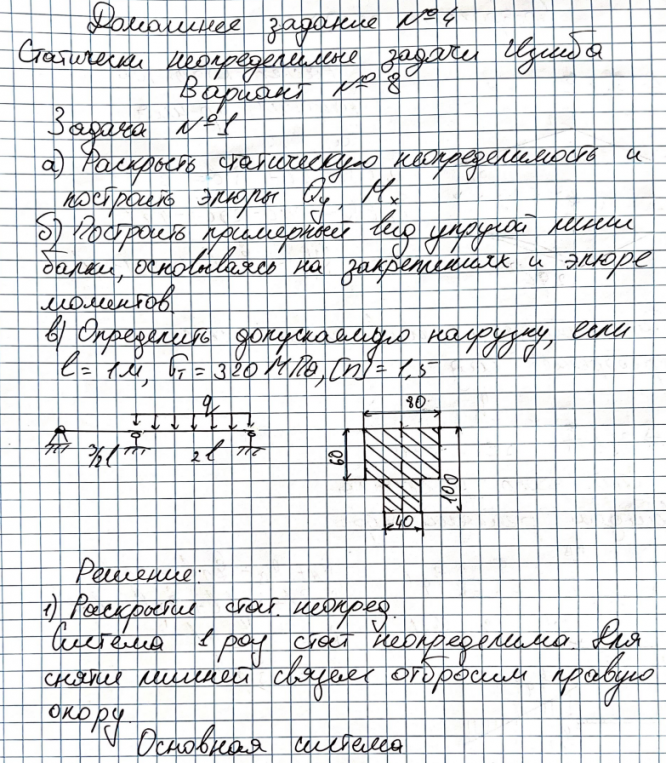 Домашнее задание №4
Статически неопределимые задачи изгиба
Вариант №8
Задача №1
а) Раскрыть статическую неопределимость и
построить эпюры Qy, Mx
б) Построить примерный вид упругой линии
балки, основываясь на закреплениях и эпюре
моментов
в) Определить допускаемую нагрузку, если
l = 1м, σт = 320 МПа, [n] = 1,5
q
3/2l 2l
80
60
100
40
Решение:
1) Раскрытие стат. неопред.
Система 1 раз стат неопределима. Для
снятия лишней связи отбросим правую
опору.
Основная система